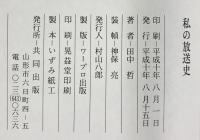 私の放送史
印刷・平成十年八月一日
発行・平成十年八月十五日
著者・田中哲
装幀・神保亮
発行人・村山八郎
製版・ワープロ出版
印刷・晃益堂印刷
製本・いずみ紙工
発行所・共同出版
山形市六日町四ー五
電話〇二三(643)〇六三〇